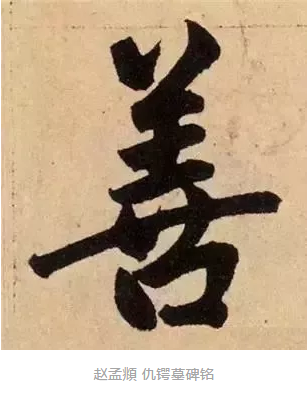 善
赵孟頫 仇锷墓碑铭